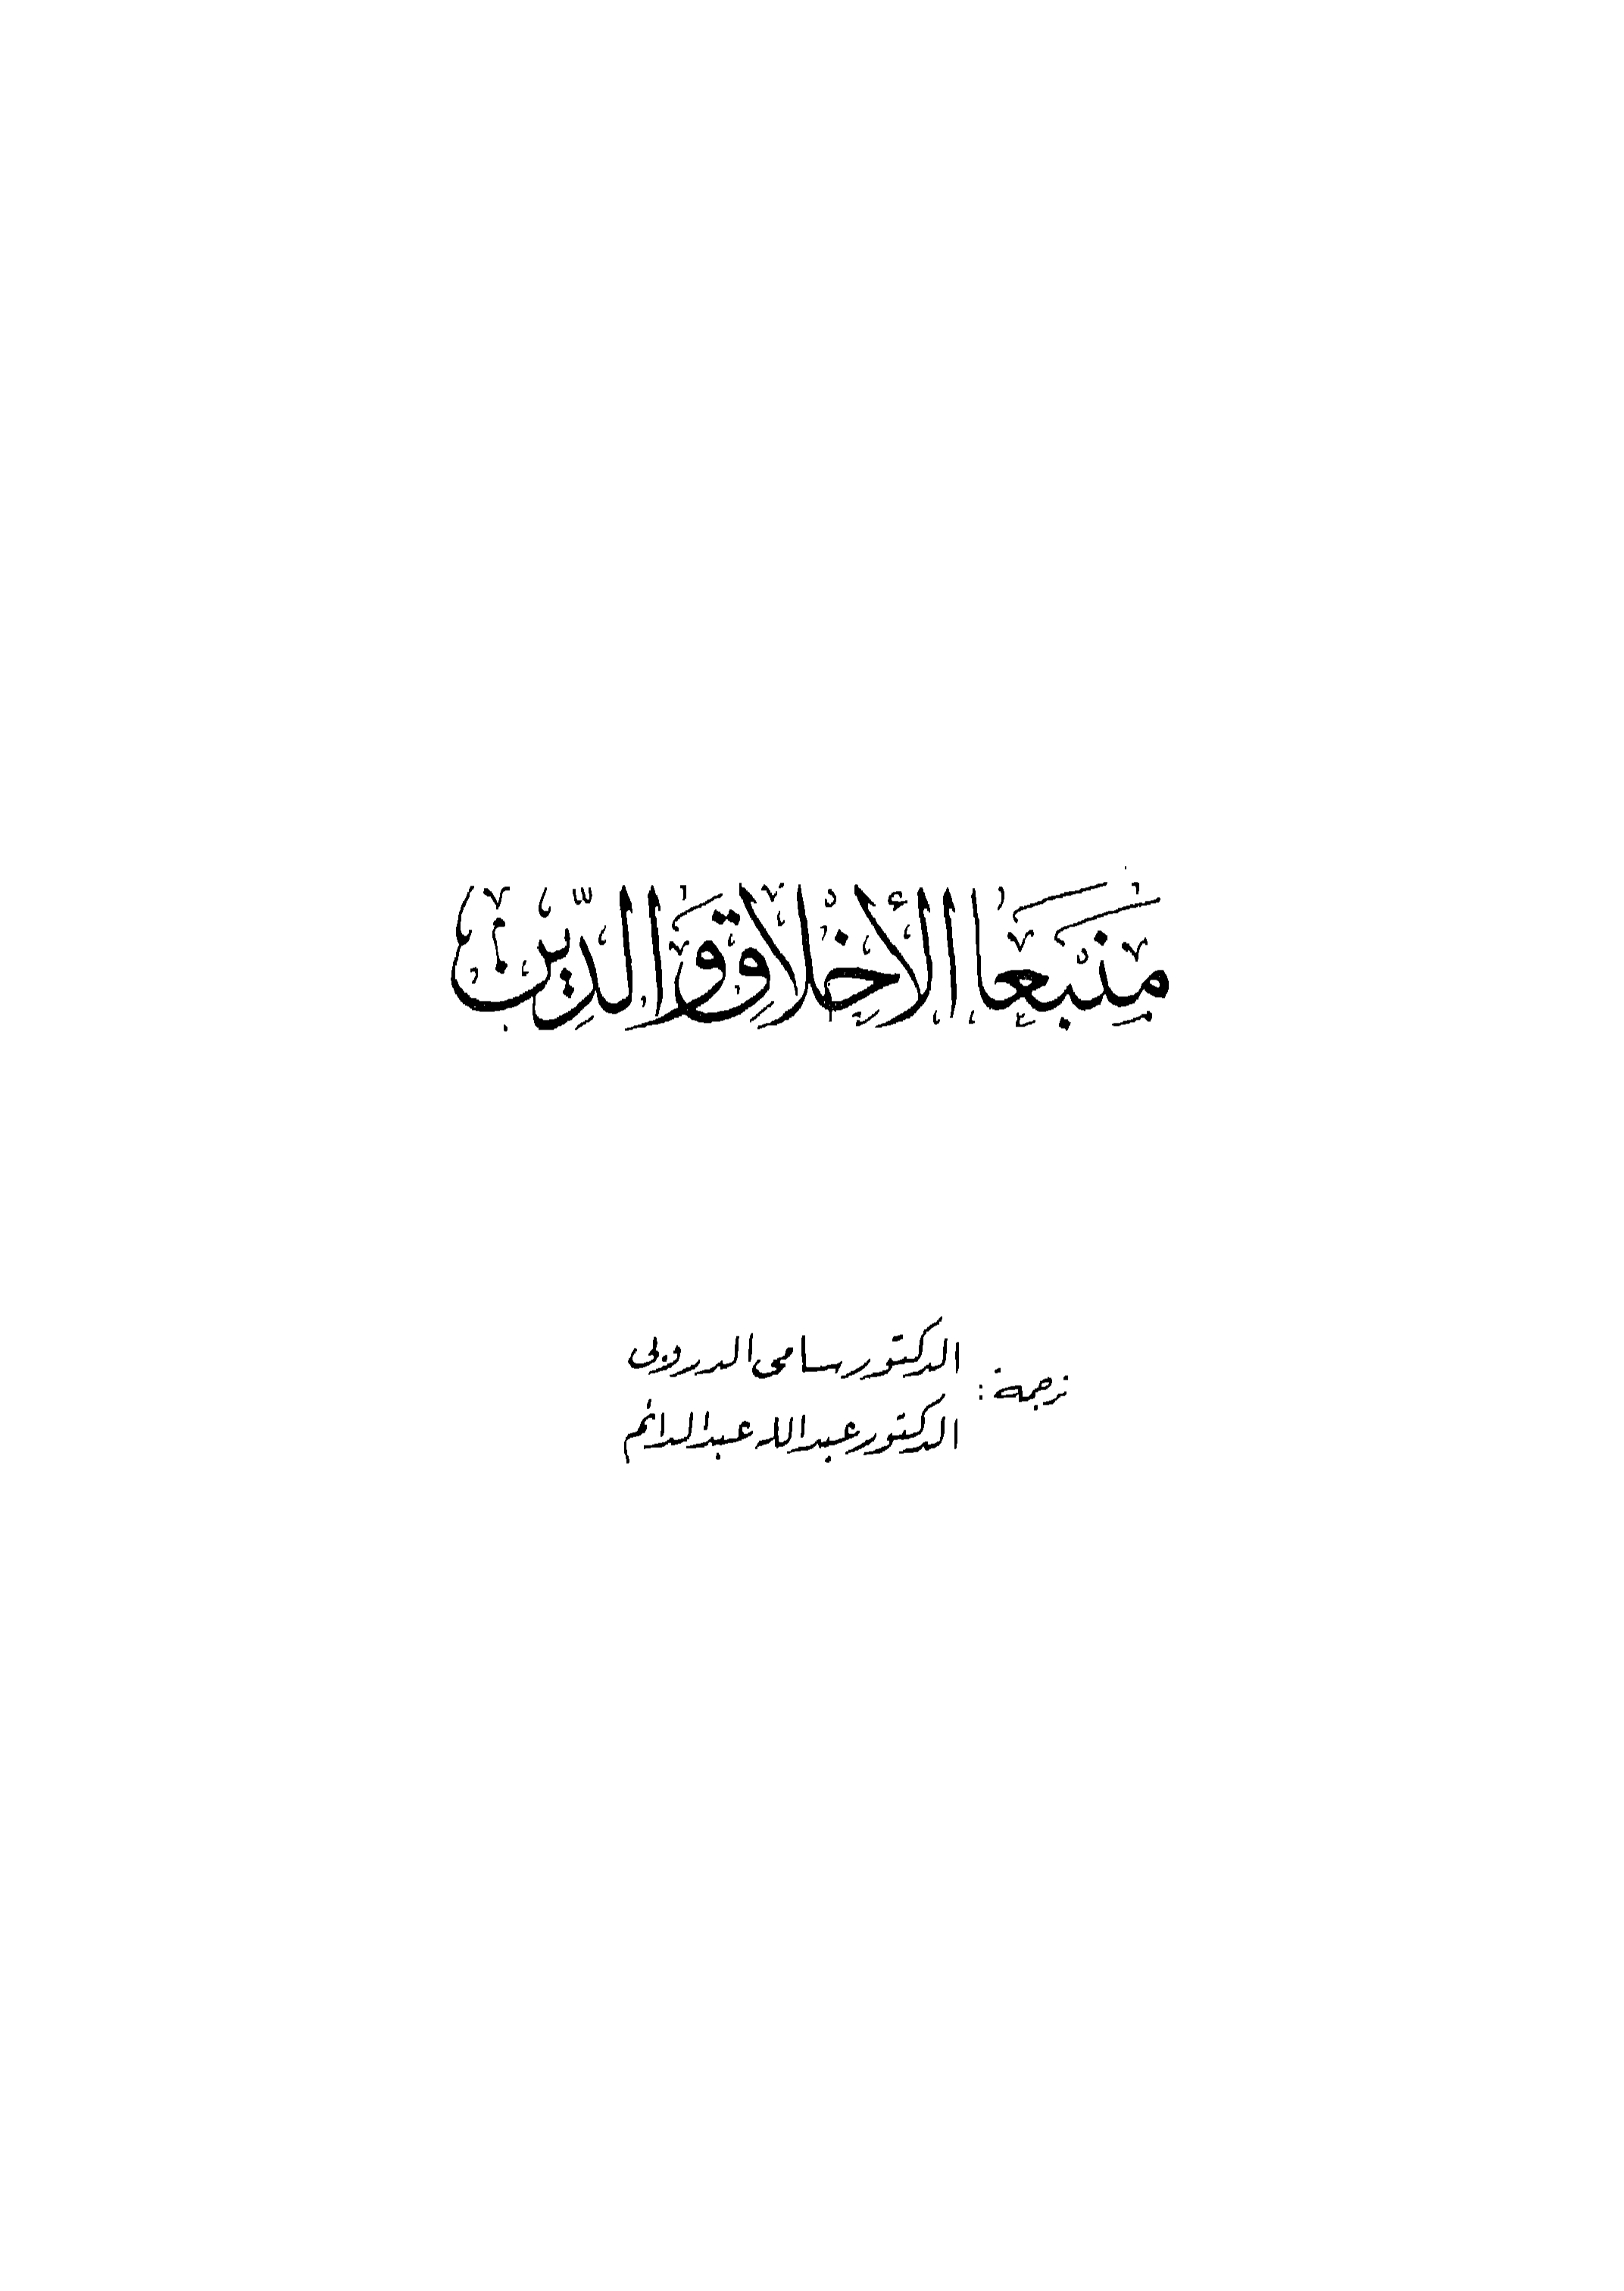 مَنْبَعَا الأَخْلَاقِ وَالدِّينِ
ترجمة :
الدكتور سامى الدروبى
الدكتور عبد الله عبد الدائم